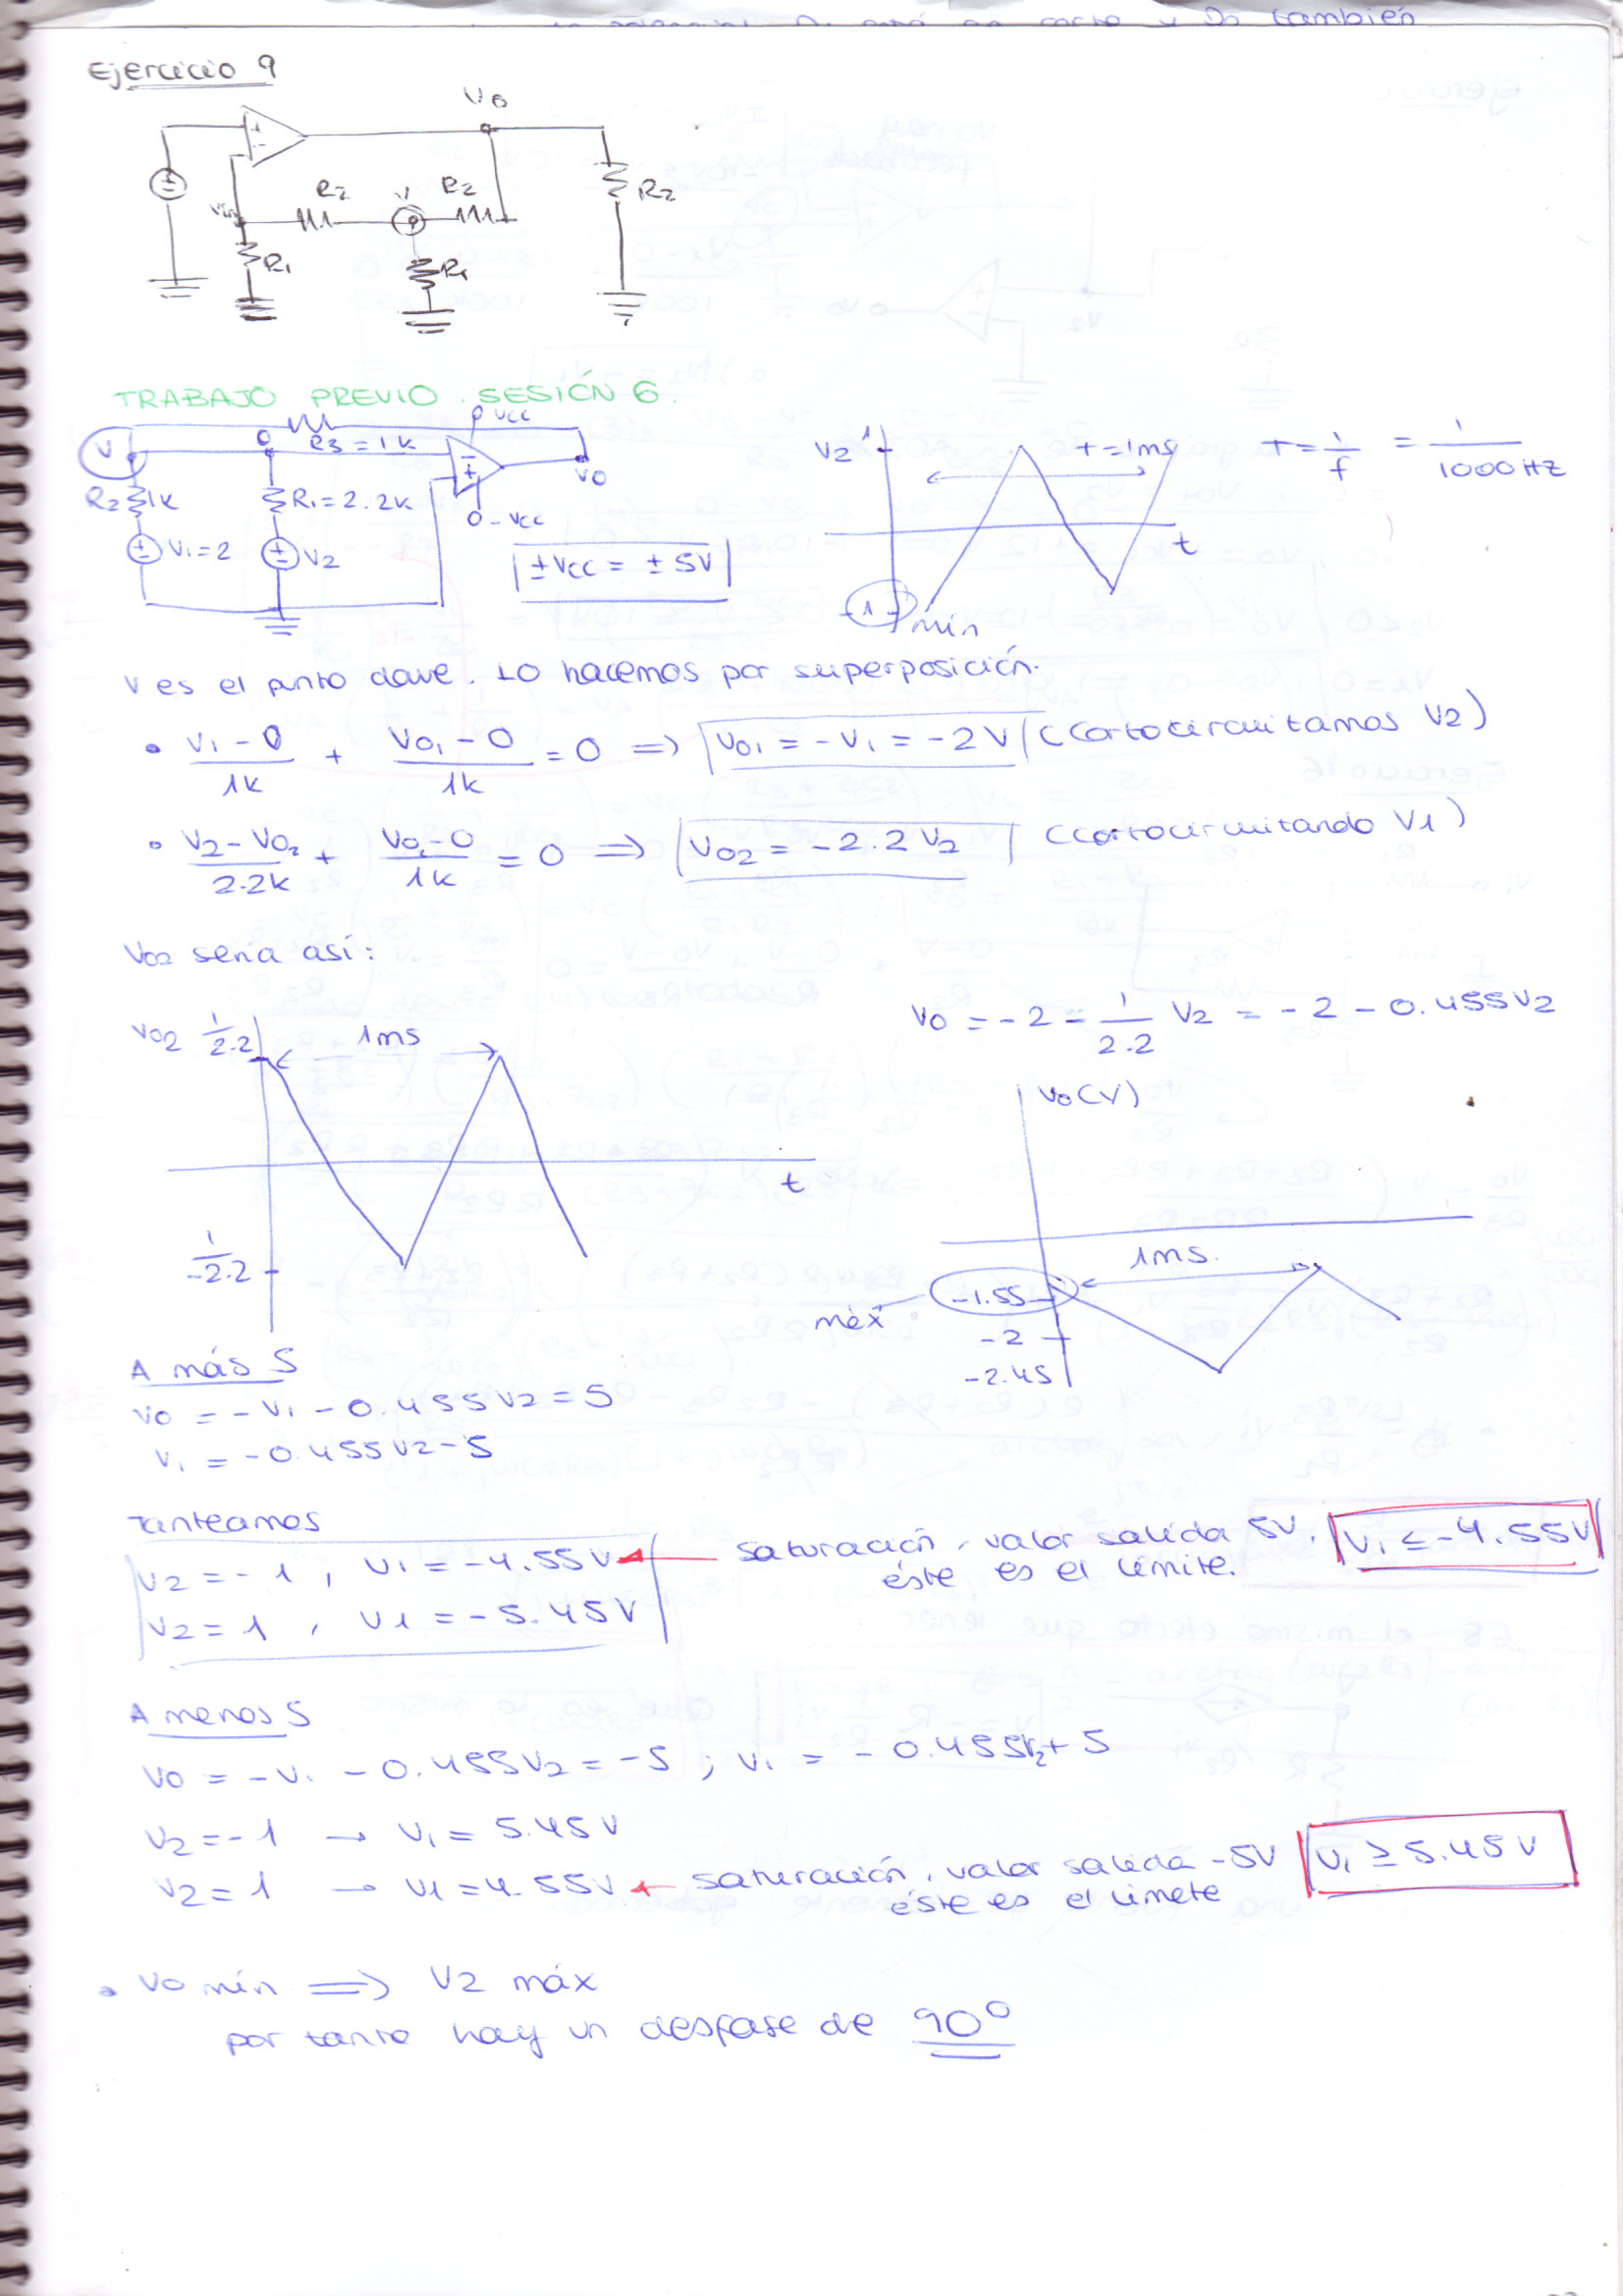 Di está en corte y D2 también
Ejercicio 9
Vo
R2 V R2 R2
Vin
R1 R1
TRABAJO PREVIO. SESIÓN 6.
V 0 R3 = 1k VCC
R2 1k R1 = 2.2k Vo
-VCC
V1 = 2 V2
±VCC = ±5V
V2 1 T = 1ms T = 1/f = 1/1000 HZ
t
-1 mín
V es el punto clave. Lo hacemos por superposición.
• (V1 - 0)/1k + (Vo1 - 0)/1k = 0 => Vo1 = -V1 = -2V (Cortocircuitamos V2)
• (V2 - Vo2)/2.2k + (Vo2 - 0)/1k = 0 => Vo2 = -2.2 V2 (Cortocircuitando V1)
Vo2 sería así:
Vo = -2 - 1/2.2 V2 = -2 - 0.455V2
Vo2 1/2.2 1ms
t
1/-2.2
Vo(V)
1ms.
máx -1.55
-2
-2.45
A más 5
Vo = -V1 - 0.455V2 = 5
V1 = -0.455V2 - 5
Tanteamos
V2 = -1, V1 = -4.55V ← saturación, valor salida 5V. V1 ≤ -4.55V
éste es el límite.
V2 = 1, V1 = -5.45V
A menos 5
Vo = -V1 - 0.455V2 = -5; V1 = -0.455V2 + 5
V2 = -1 → V1 = 5.45V
V2 = 1 → V1 = 4.55V ← saturación, valor salida -5V V1 ≥ 5.45V
éste es el límite
• Vo mín => V2 máx
por tanto hay un desfase de 90º